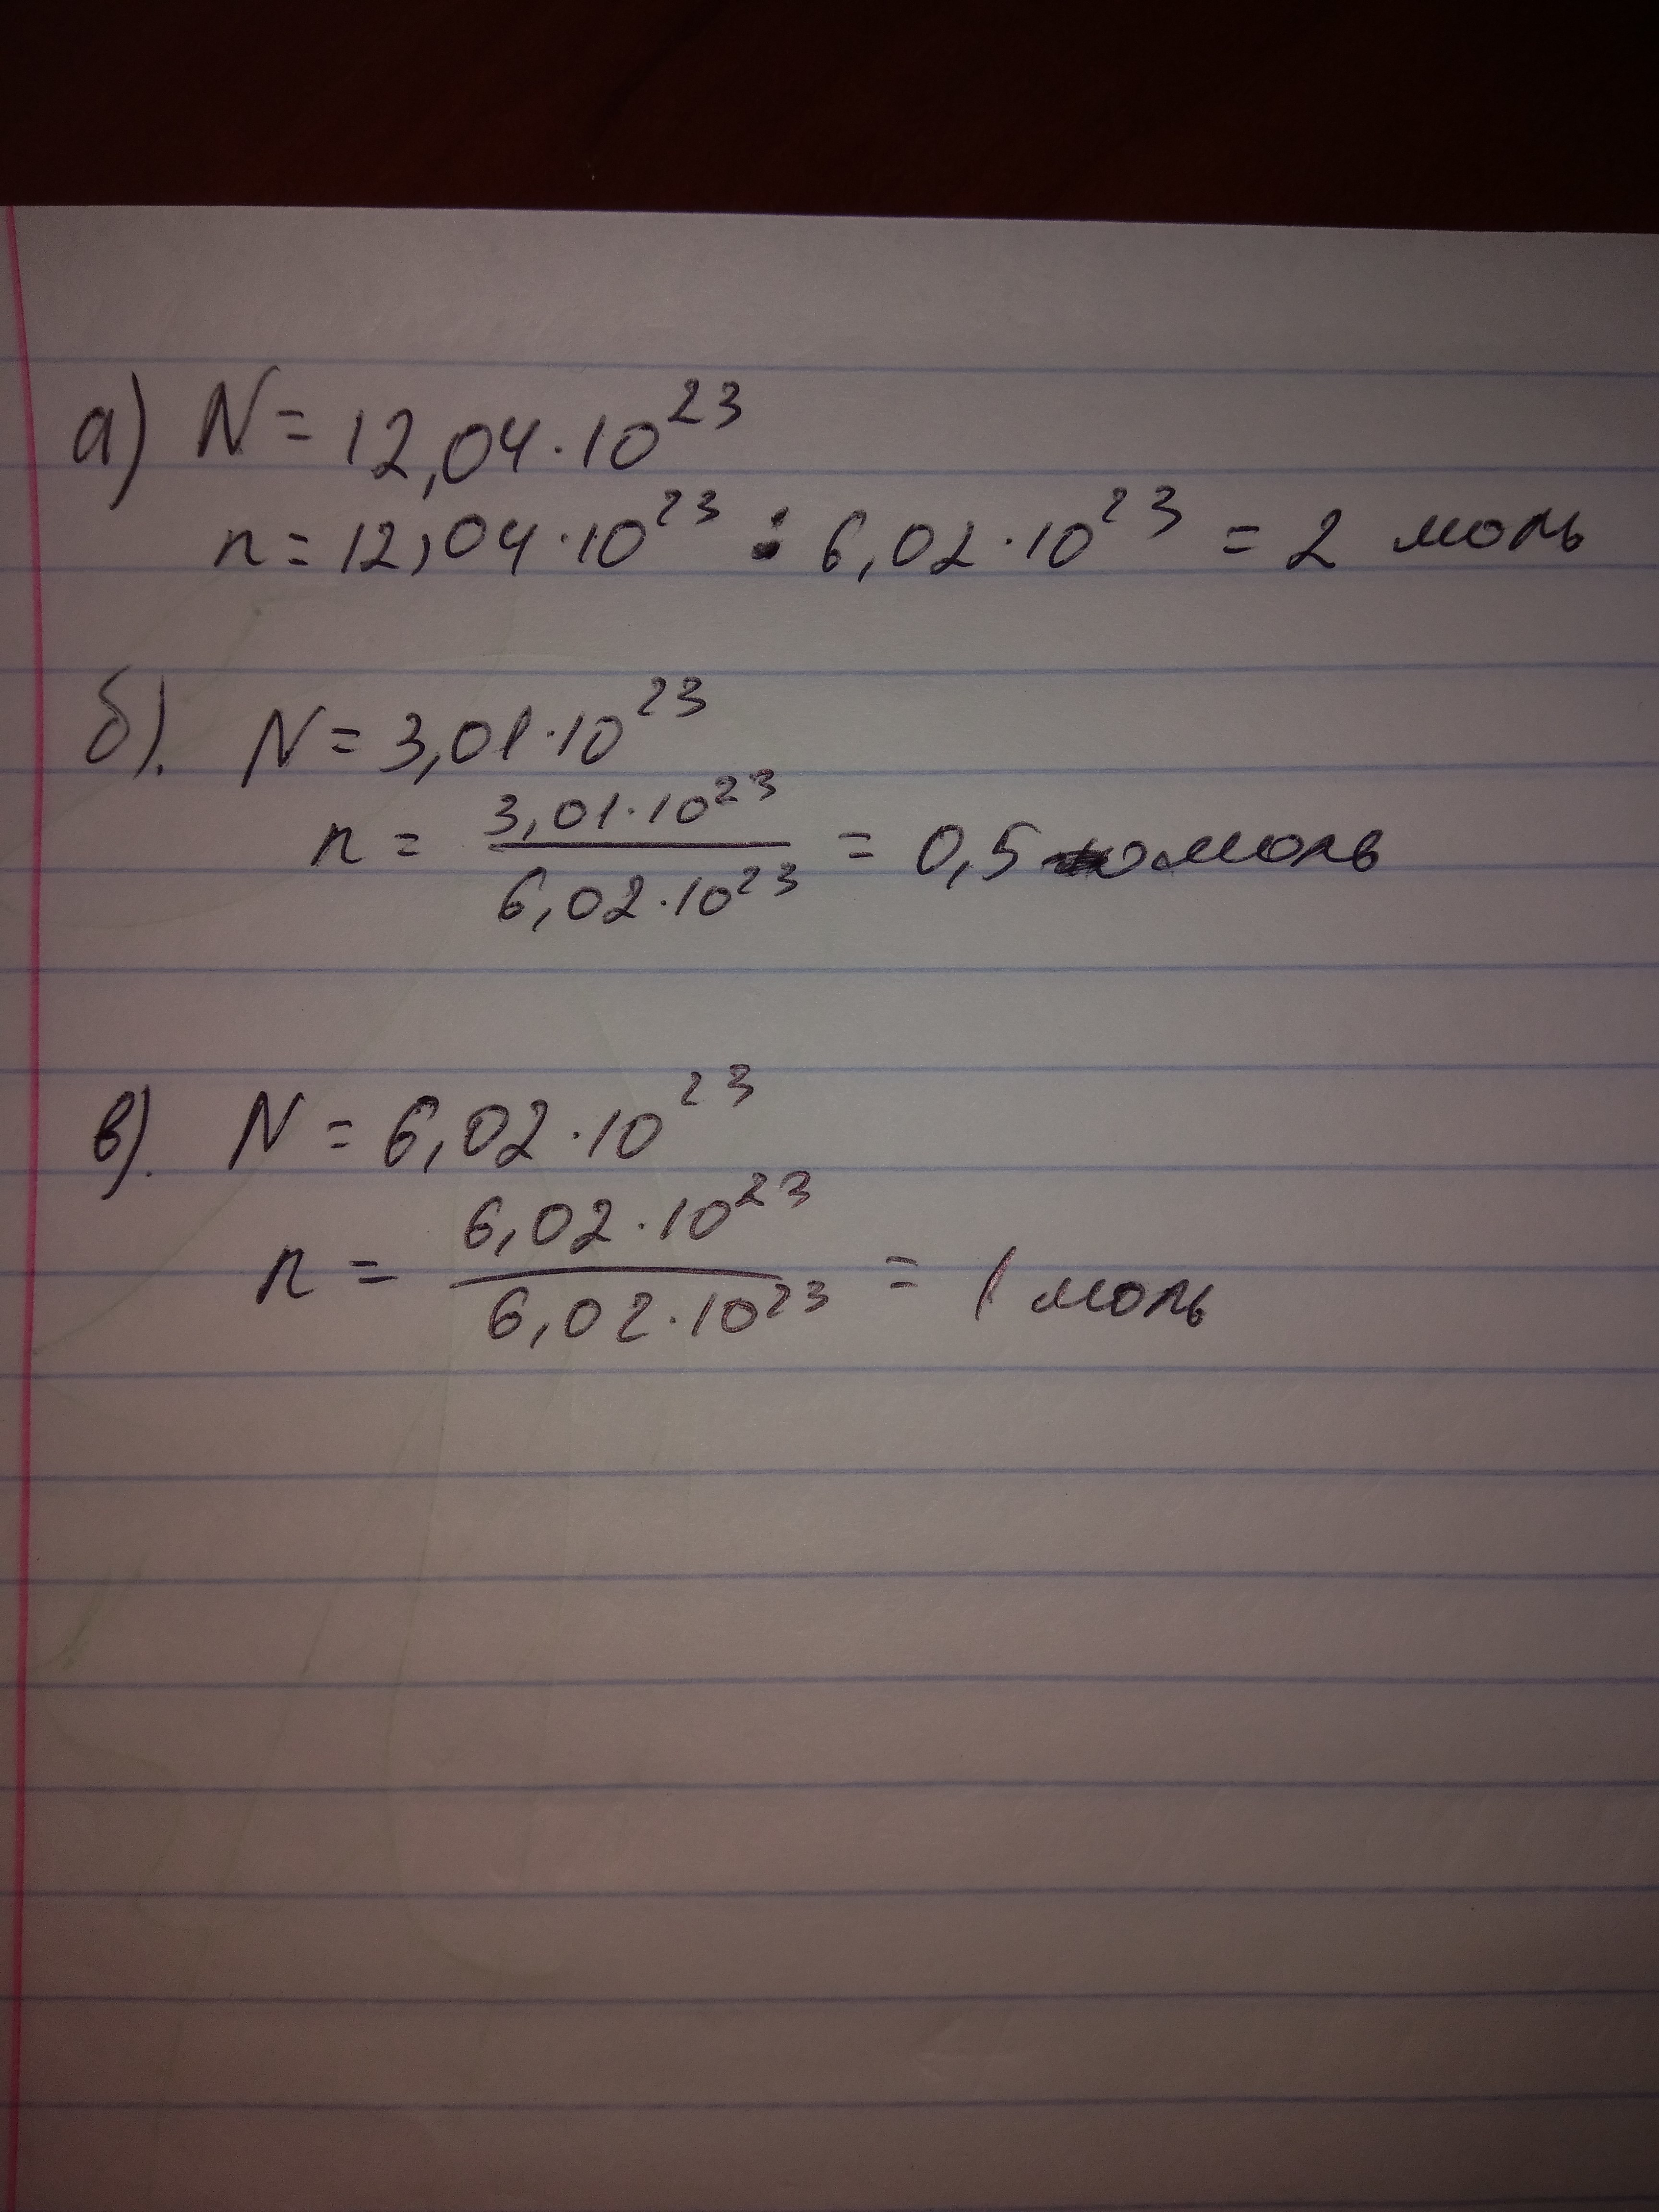 а) N = 12,04·10²³
n = 12,04·10²³ : 6,02·10²³ = 2 моль
б). N = 3,01·10²³
n = 3,01·10²³ / 6,02·10²³ = 0,5 моль
в). N = 6,02·10²³
n = 6,02·10²³ / 6,02·10²³ = 1 моль